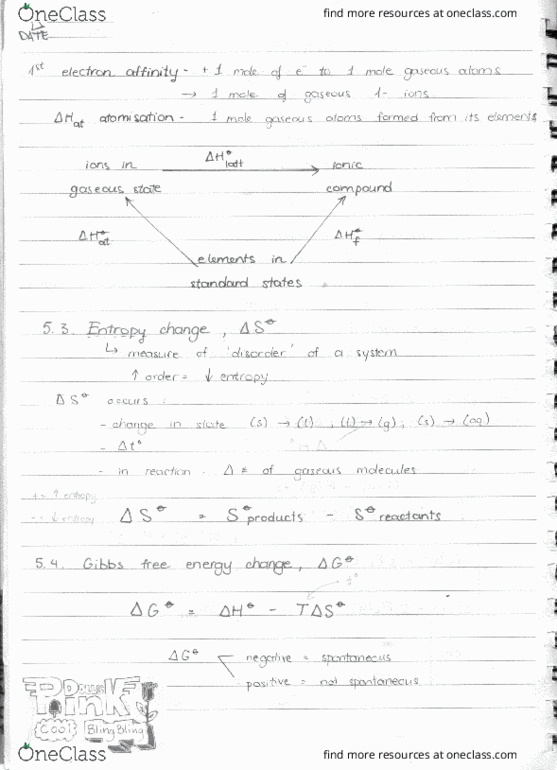 OneClass
find more resources at oneclass.com
DATE
1st electron affinity - + 1 mole of e⁻ to 1 mole gaseous atoms
→ 1 mole of gaseous 1- ions
ΔHat atomisation - 1 mole gaseous atoms formed from its elements
ions in
gaseous state
ΔH°latt
ionic
compound
ΔH°at
ΔH°f
elements in
standard states
5.3. Entropy change, ΔS°
↳ measure of 'disorder' of a system
↑ order = ↓ entropy
ΔS° occurs:
- change in state (s) → (l), (l) → (g), (s) → (aq)
- Δt°
- in reaction · Δ ≠ of gaseous molecules
+ = ↑ entropy
- = ↓ entropy
ΔS° = S° products - S° reactants
5.4. Gibbs free energy change, ΔG°
t°
ΔG° = ΔH° - TΔS°
ΔG°
negative = spontaneous
positive = not spontaneous
Pink
Cool
BlingBling
OneClass
find more resources at oneclass.com